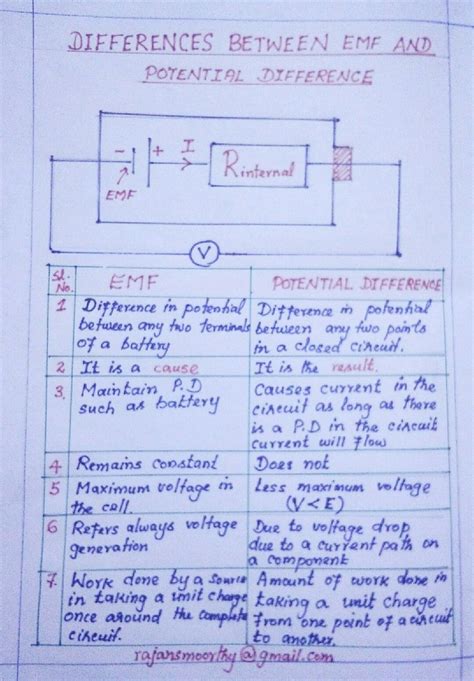 DIFFERENCES BETWEEN EMF AND
POTENTIAL DIFFERENCE
- + I
Rinternal
EMF
V
Sl. No. EMF POTENTIAL DIFFERENCE
1 Difference in potential
between any two terminals
of a battery
Difference in potential
between any two points
in a closed circuit.
2 It is a cause
It is the result.
3. Maintain P.D
such as battery
Causes current in the
circuit as long as there
is a P.D in the circuit
current will flow
4 Remains constant
Does not
5 Maximum voltage in
the cell.
Less maximum voltage
(V<E)
6 Refers always voltage
generation
Due to voltage drop
due to a current path on
a component
7. Work done by a source
in taking a unit charge
once around the complete
circuit.
Amount of work done in
taking a unit charge
from one point of a circuit
to another.
rajansmoorthy@gmail.com